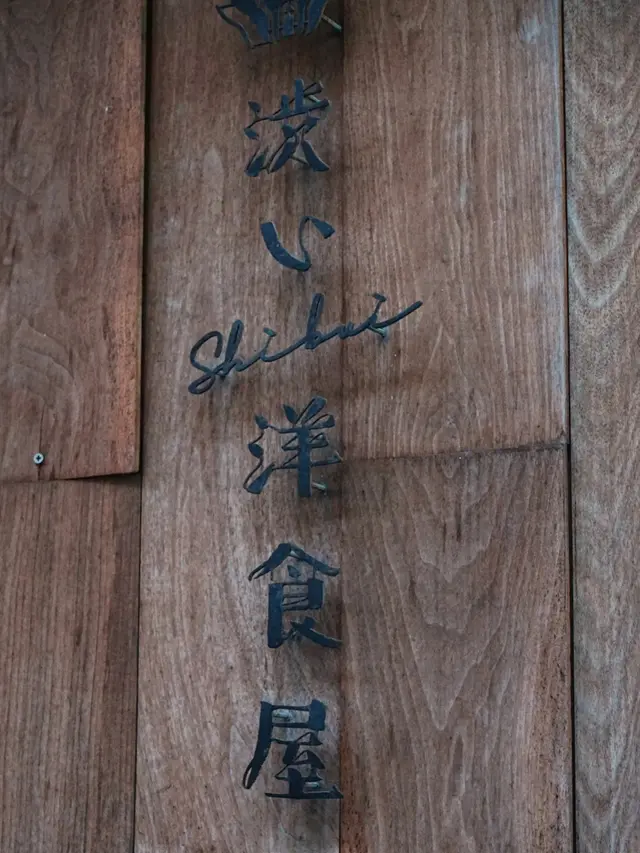 渋い
Shibui
洋食屋